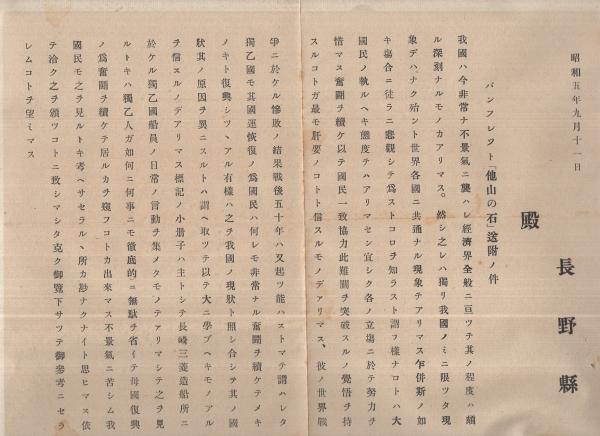 昭和五年九月十一日
長野縣
殿
パンフレツト「他山の石」送附ノ件
我國ハ今非常ナ不景氣ニ襲ハレ經濟界全般ニ亘ツテ其ノ程度ハ頗
ル深刻ナルモノカアリマス。然シ之レハ獨リ我國ノミニ限ツタ現
象デハナク殆ント世界各國ニ共通ナル現象テアリマス乍併斯ノ如
キ場合ニ徒ラニ悲觀シテ爲ストコロヲ知ラスト謂フ樣ナコトハ大
國民ノ執ルヘキ態度テハアリマセン宜シク各ノ立塲ニ於テ努力ヲ
惜マス奮鬪ヲ續ケ以テ國民一致協力此難關ヲ突破スルノ覺悟ヲ持
スルコトガ最モ肝要ノコトト信スルモノデアリマス、彼ノ世界戰
爭ニ於ケル慘敗ノ結果戰後五十年ハ又起ツ能ハストマテ謂ハレタ
獨乙國モ其國運恢復ノ爲國民ハ何レモ非常ナル奮鬪ヲ續ケテメキ
ノキト復興シツヽアル有樣ハ之ヲ我國ノ現狀ト照シ合シテ其ノ國
狀其ノ原因ヲ異ニスルトハ謂ヘ取ツテ以テ大ニ學プヘキモノアル
ヲ信スルノデアリマス標記ノ小册子ハ主トシテ長崎三菱造船所ニ
於ケル獨乙國船員ノ日常ノ言動ヲ集メタモノテアリマシテ之ヲ見
ルトキハ獨乙人ガ如何ニ何事ニモ徹底的ニ無駄ヲ省イテ母國復興
ノ爲奮鬪ヲ續ケテ居ルカヲ窺フコトカ出來マス不景氣ニ苦シム我
國民モ之ヲ見ルトキ考ヘサセラルヽ所カ尠ナクナイト思ヒマス依
テ洽ク之ヲ頒ツコトニ致シマシタ克ク御覽下サツテ御參考ニセラ
レムコトヲ望ミマス